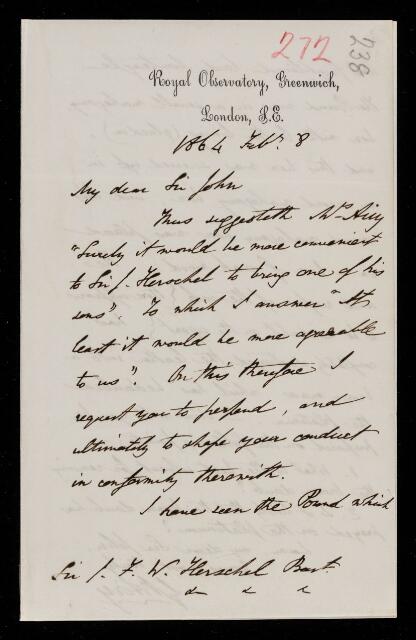 272
238
Royal Observatory, Greenwich,
London, S.E.
1864 Feby. 8
My dear Sir John
Thus suggesteth Mrs Airy
"Surely it would be more convenient
to Sir J. Herschel to bring one of his
sons". To which I answer "At
least it would be more agreeable
to us". On this therefore I
request you to perpend, and
ultimately to shape your conduct
in conformity therewith.
I have seen the Pound which
Sir J. F. W. Herschel Bart.